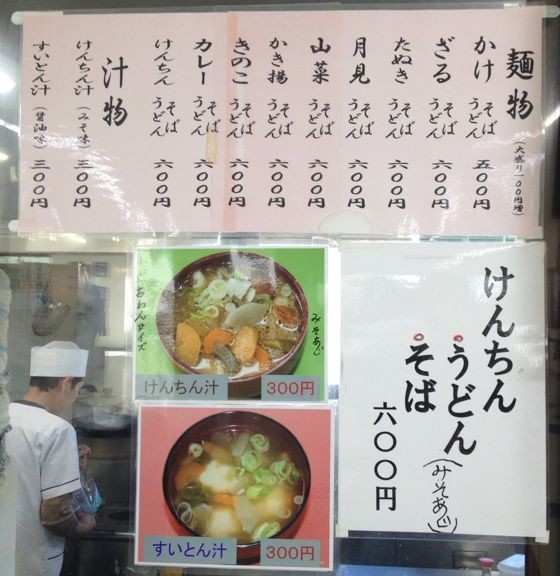 麺物（大盛り一〇〇円増）
かけ そば うどん 五〇〇円
ざる そば うどん 六〇〇円
たぬき そば うどん 六〇〇円
月見 そば うどん 六〇〇円
山菜 そば うどん 六〇〇円
かき揚 そば うどん 六〇〇円
きのこ そば うどん 六〇〇円
カレー そば うどん 六〇〇円
けんちん そば うどん 六〇〇円
汁物
けんちん汁（みそ味） 三〇〇円
すいとん汁（醤油味） 三〇〇円
みそあじ
おわんサイズ
けんちん汁 300円
すいとん汁 300円
けんちん
うどん（みそあじ）
そば
六〇〇円